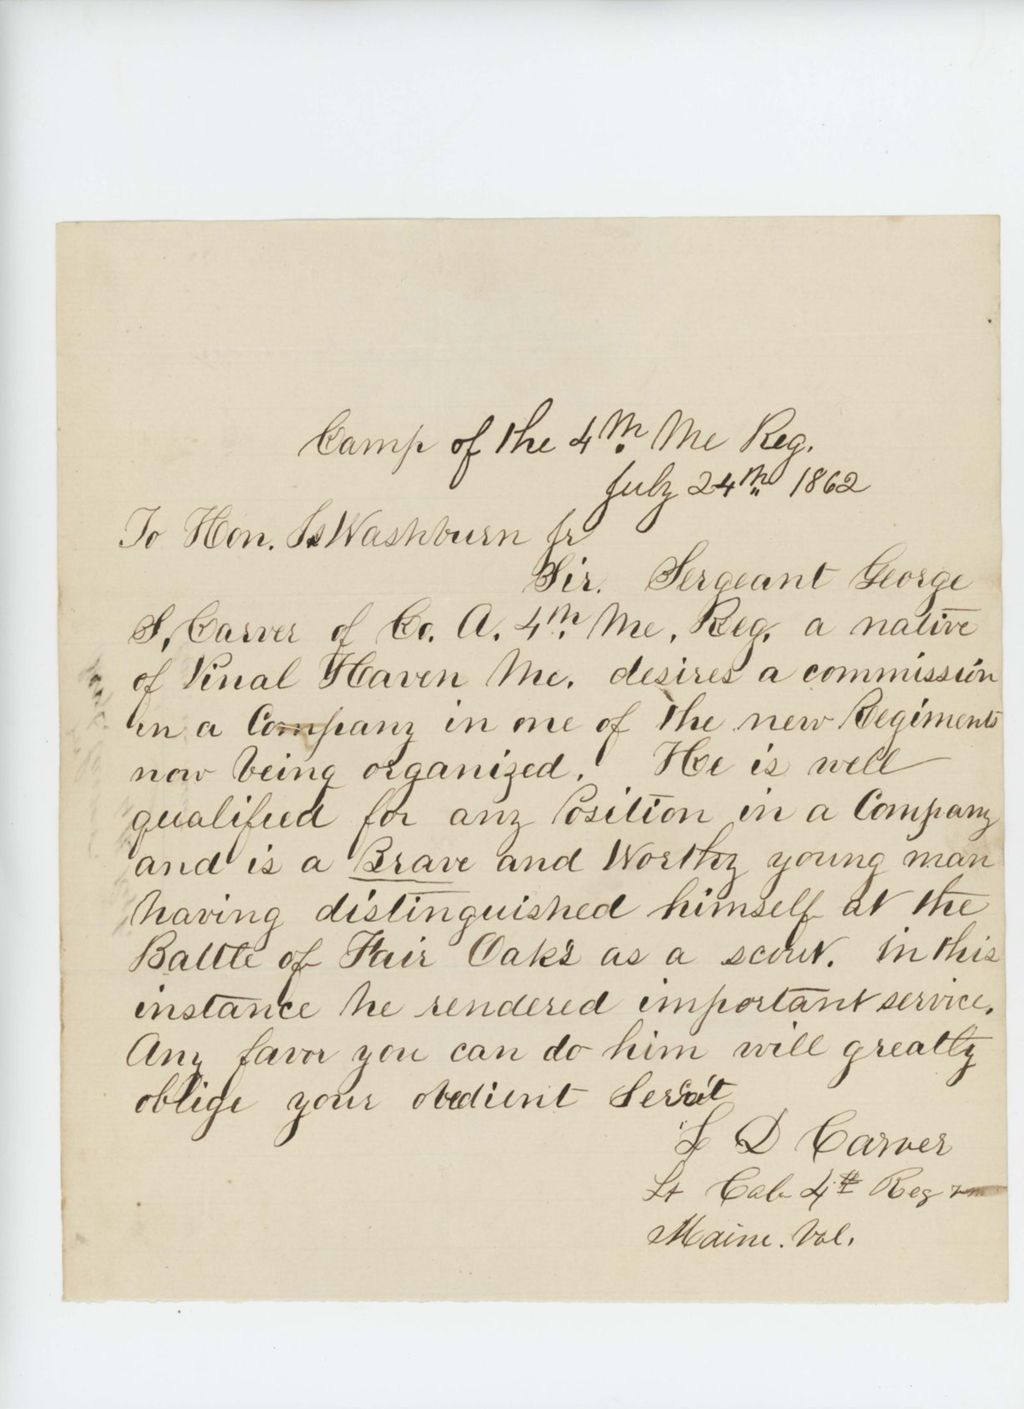 Camp of the 4th Me Reg.
July 24th 1862
To Hon. Is Washburn Jr
Sir. Sergeant George
S. Carver of Co. A. 4th Me. Reg. a native
of Vinal Haven Me. desires a commission
in a Company in one of the new Regiments
now being organized. He is well
qualified for any Position in a Company
and is a Brave and Worthy young man
having distinguished himself at the
Battle of Fair Oaks as a scout. in this
instance he rendered important service.
Any favor you can do him will greatly
oblige your obedient Servt
L D Carver
Lt Col 4th Reg
Maine. Vol.